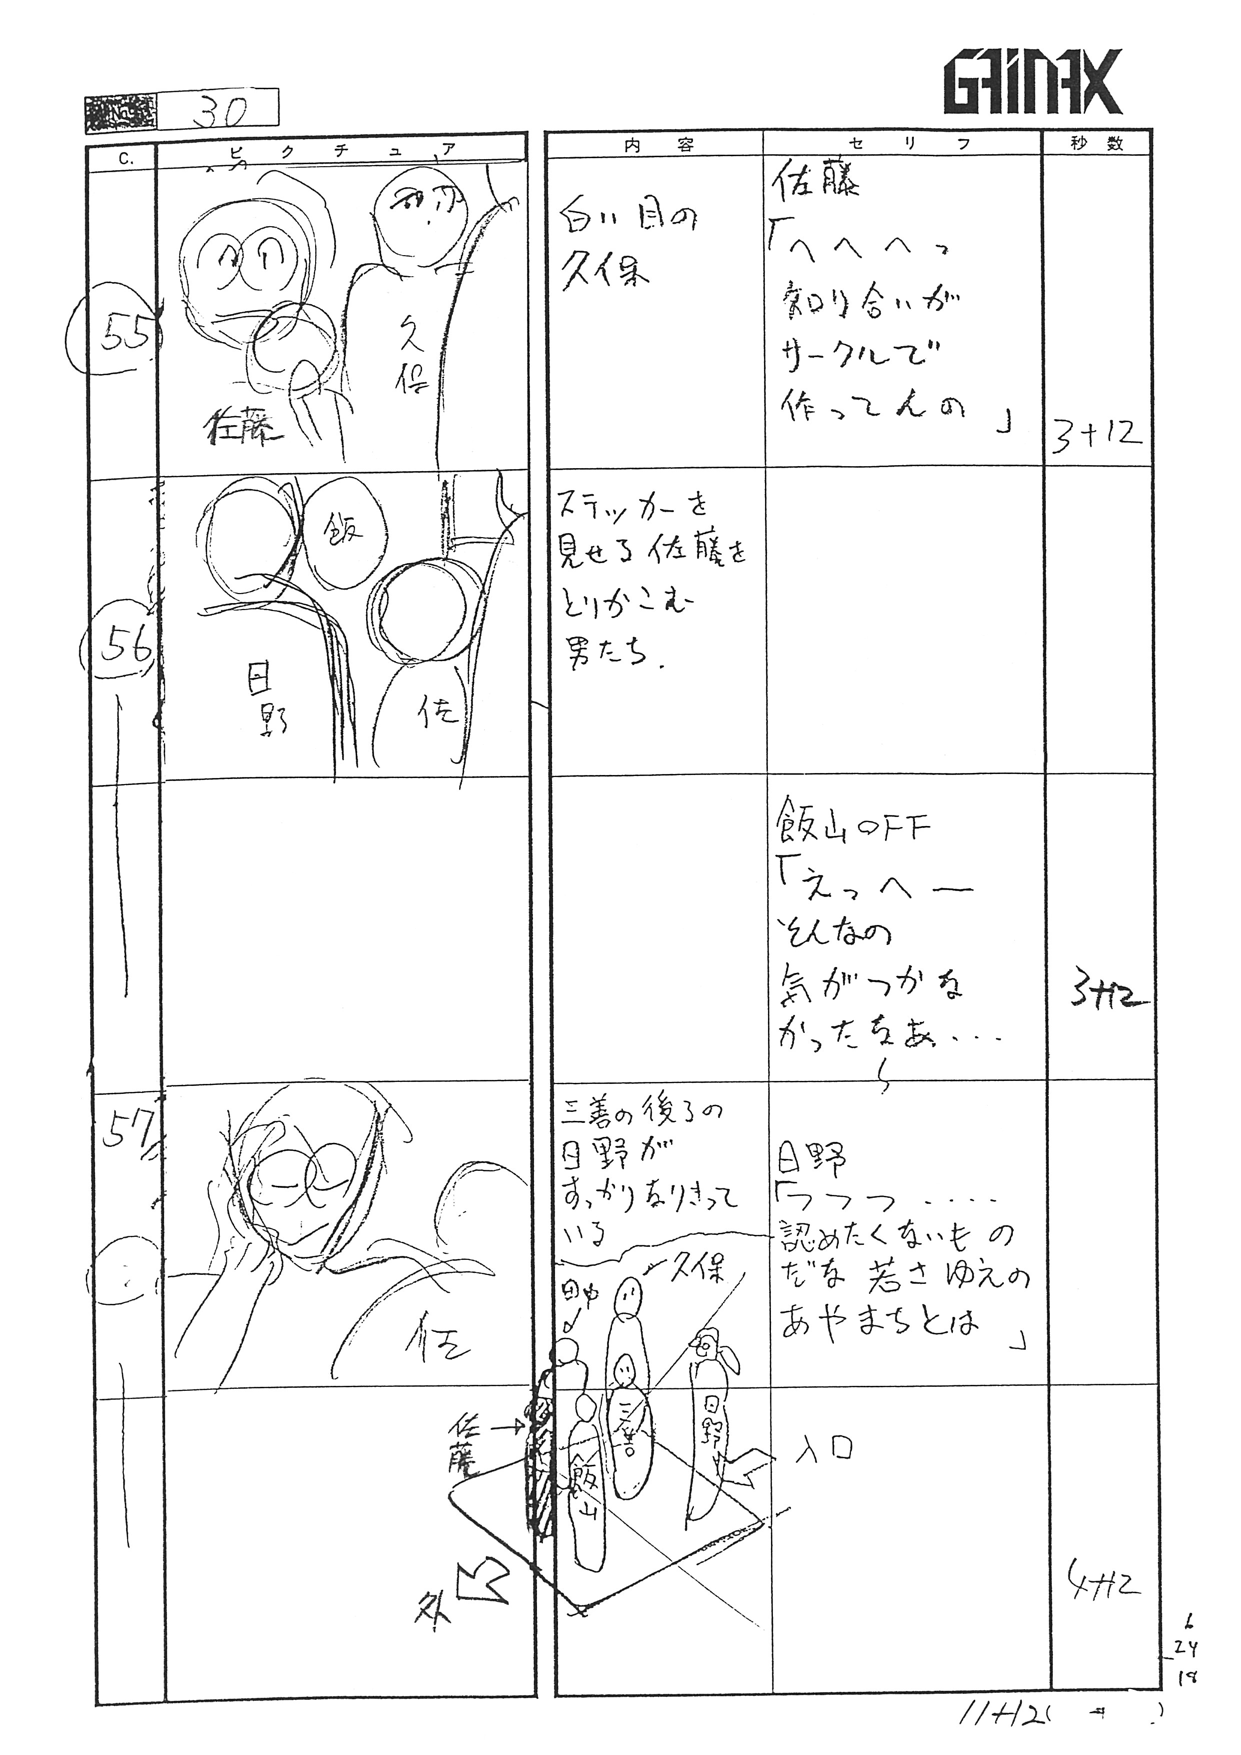 GAINAX
No. 30
C. ピクチュア 内容 セリフ 秒数
55
久保
佐藤
白い目の
久保
佐藤
「へへへっ
知り合いが
サークルで
作ってんの」
3+12
56
飯
日野
佐
ステッカーを
見せる佐藤を
とりかこむ
男たち.
飯山OFF
「えっへー
そんなの
気がつかな
かったなあ....
3+12
57
佐
三善の後ろの
日野が
すっかりなりきって
いる
日野
「フフフ....
認めたくないもの
だな若さゆえの
あやまちとは」
久保
田中
三善
日野
佐藤
飯山
入口
外
4+12
6
24
18
11+12